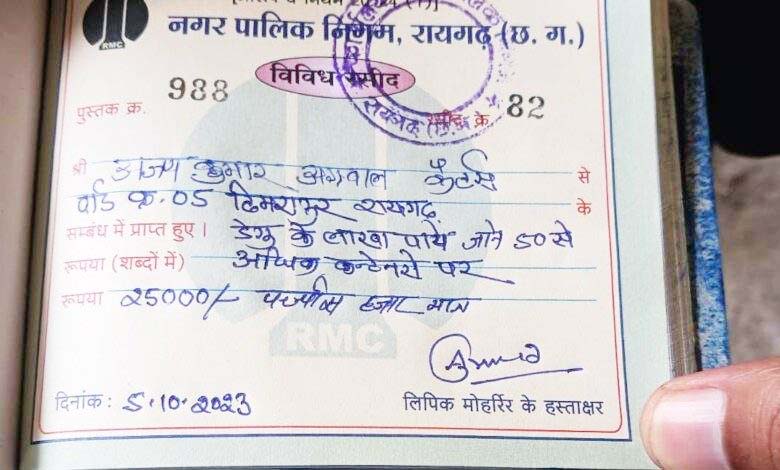 नगर पालिक निगम, रायगढ़ (छ. ग.)
RMC
विविध रसीद
पुस्तक क्र. 988 रसीद क्र. 82
श्री अजय कुमार अग्रवाल से
वार्ड क्र. 05 रायगढ़ के
सम्बंध में प्राप्त हुए। डेंगू के लारवा पाये जाने 50 से
रूपया (शब्दों में) अधिक कन्टेनरो पर
रूपया 25000/- पच्चीस हजार मात्र
RMC
दिनांक: 5.10.2023 लिपिक मोहर्रिर के हस्ताक्षर